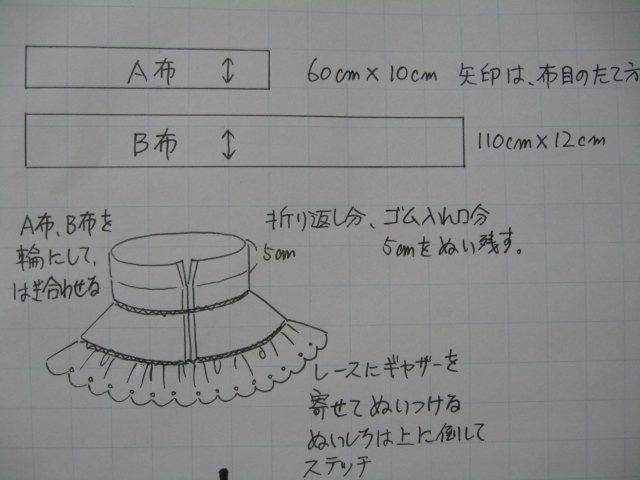 A布
60cm×10cm 矢印は、布目のたて方
B布
110cm×12cm
A布、B布を
輪にして、
はぎ合わせる
折り返し分、ゴム入れ口分
5cmをぬい残す。
5cm
レースにギャザーを
寄せてぬいつける
ぬいしろは上に倒して
ステッチ